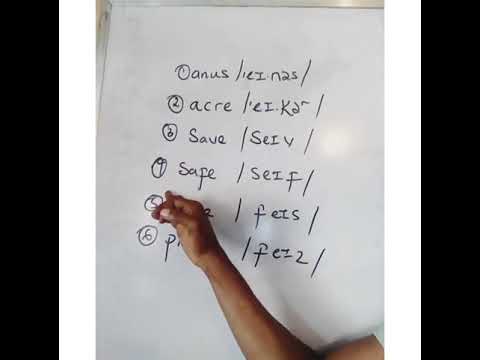 ① anus /ˈeɪ.nəs/
② acre /ˈeɪ.kər/
③ Save /Seɪv/
④ Safe /Seɪf/
⑤ /feɪs/
⑥ /feɪz/